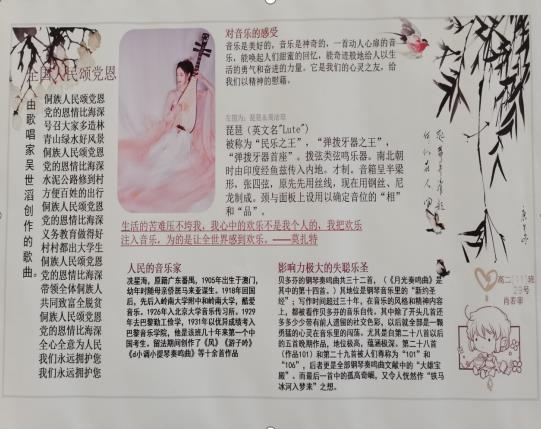 全国人民颂党恩
由歌唱家吴世滔创作的歌曲。
侗族人民颂党恩
党的恩情比海深
号召大家多造林
青山绿水好风景
侗族人民颂党恩
党的恩情比海深
水泥公路修到村
方便百姓的出行
侗族人民颂党恩
党的恩情比海深
义务教育做得好
村村都出大学生
侗族人民颂党恩
党的恩情比海深
带领全体侗族人
共同致富全脱贫
侗族人民颂党恩
党的恩情比海深
全心全意为人民
我们永远拥护您
我们永远拥护您
对音乐的感受
音乐是美好的，音乐是神奇的，一首动人心扉的音
乐，能唤起人们甜蜜的回忆，能奇迹般地给人以生活
的勇气和奋进的力量。它是我们的心灵之友，给
我们以精神的慰藉。
琵琶（英文名"Lute"）
被称为“民乐之王”，“弹拨乐器之王”，
“弹拨乐器首座”。拨弦类弦鸣乐器。南北朝
时由印度经丝兹传入内地。才制，音箱呈半梨
形，张四弦，原先先用丝线，现在用钢丝、尼
龙制成。颈与面板上设用以确定音位的“相”
和“品”。
生活的苦难压不垮我，我心中的欢乐不是我个人的，我把欢乐
注入音乐，为的是让全世界感到欢乐。——莫扎特
人民的音乐家
冼星海，原籍广东番禺，1905年出生于澳门，
幼年时随母亲侨居马来亚谋生。1918年回国
后，先后入岭南大学附中和岭南大学，酷爱
音乐。1926年入北京大学音乐传习所。1929
年去巴黎勤工俭学，1931年以优异成绩考入
巴黎音乐学院，他是该班几十年来第一个中
国考生。留法期间创作了《风》《游子吟》
《d小调小提琴奏鸣曲》等十余首作品
影响力极大的失聪乐圣
贝多芬的钢琴奏鸣曲共三十二首，（《月光奏鸣曲》是
其中的第十四首。）其地位是钢琴音乐里的“新约圣
经”；写作时间超过三十年，在音乐的风格和精神内容
上，都被看作贝多芬的音乐传记。其中除了开头几首还
多多少少带有前人遗留的社交色彩，以后就全部是一颗
勇猛的心灵在音乐里的闯荡。尤其是自第二十八首以后
的五首晚期作品，地位极高，蕴涵极深。第二十八首
（作品101）和第二十九首被人们尊称为“101”和
“106”，后者更是全部钢琴奏鸣曲文献中的“大雄宝
殿”。而最后一首中的孤高奇崛，又令人恍然作“铁马
冰河入梦来”之想。